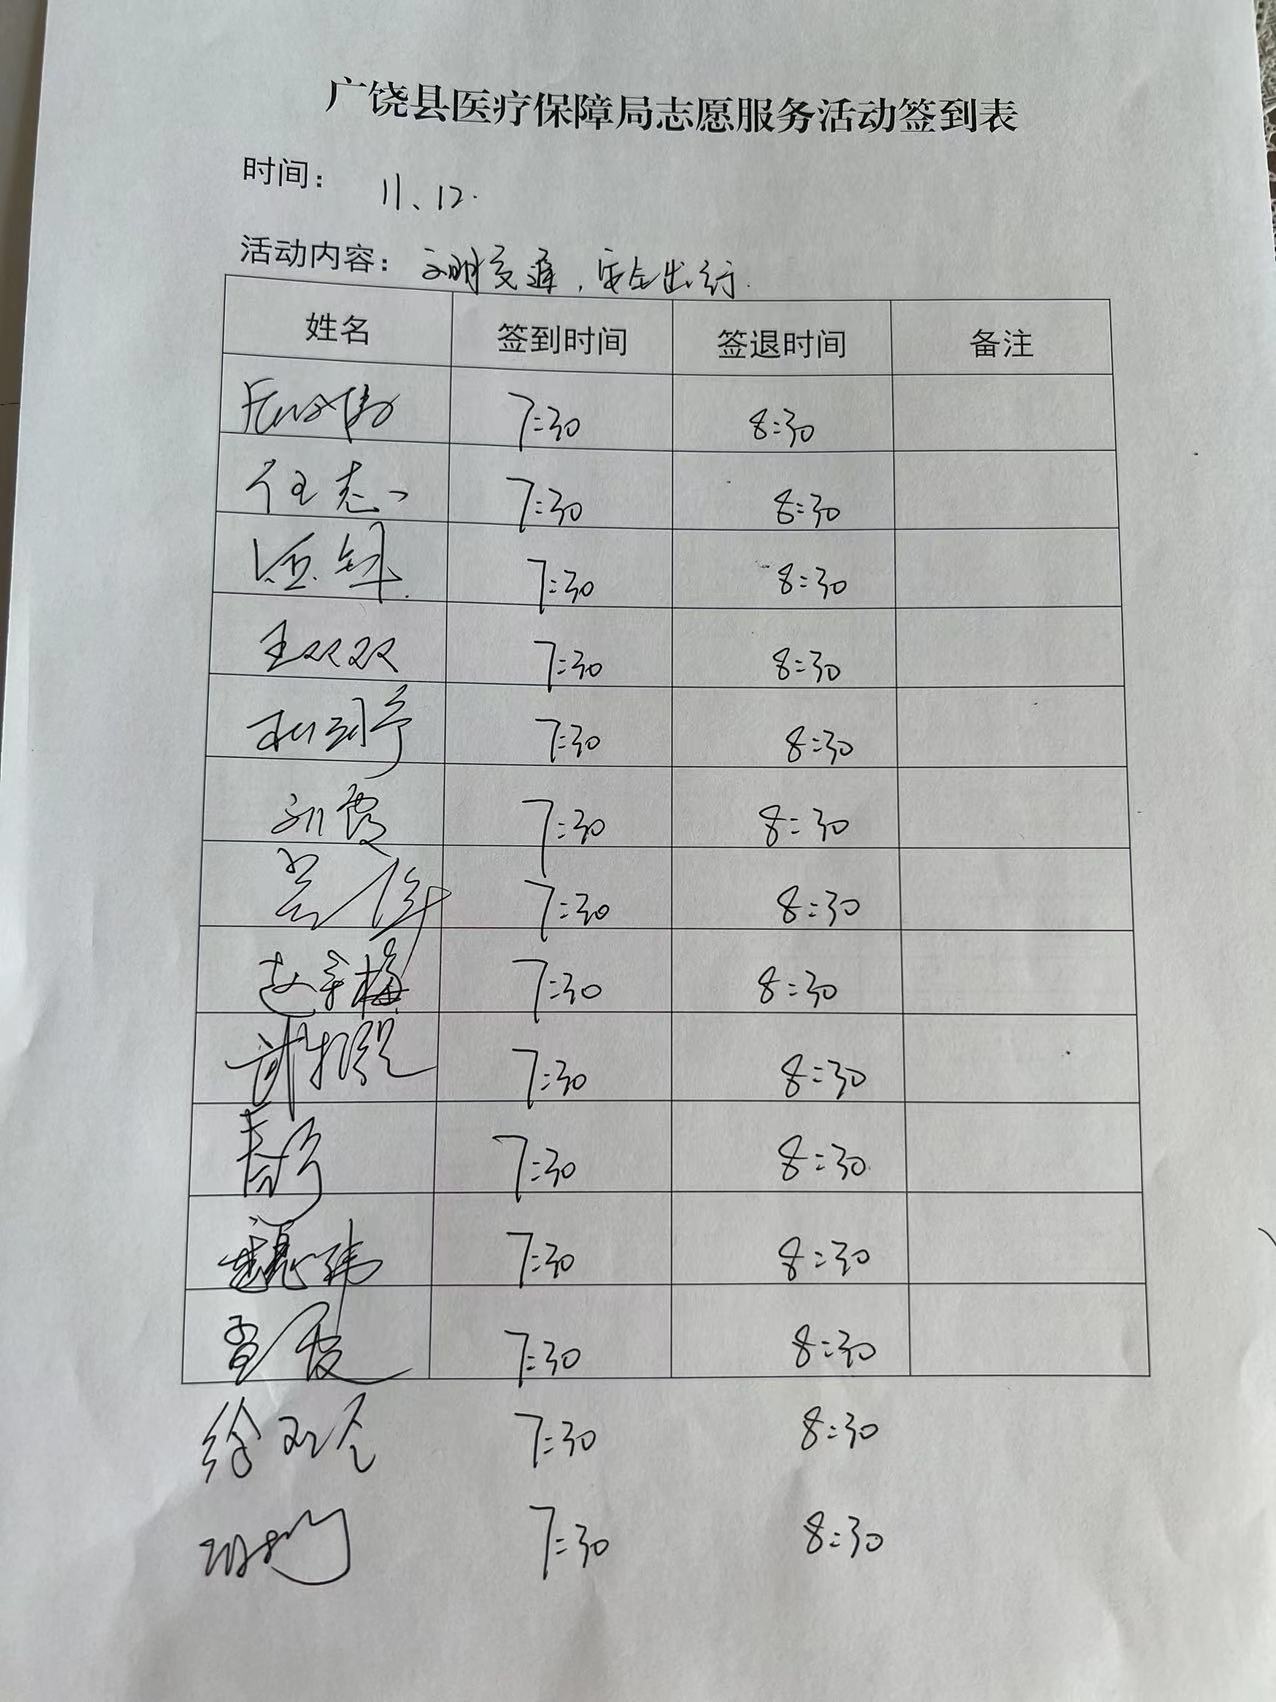 广饶县医疗保障局志愿服务活动签到表
时间： 11、12.
活动内容：文明交通，安全出行.
姓名 签到时间 签退时间 备注
7:30 8:30
任志 7:30 8:30
7:30 8:30
王双双 7:30 8:30
7:30 8:30
刘霞 7:30 8:30
7:30 8:30
赵 梅 7:30 8:30
7:30 8:30
7:30 8:30
魏 7:30 8:30
7:30 8:30
徐 7:30 8:30
7:30 8:30